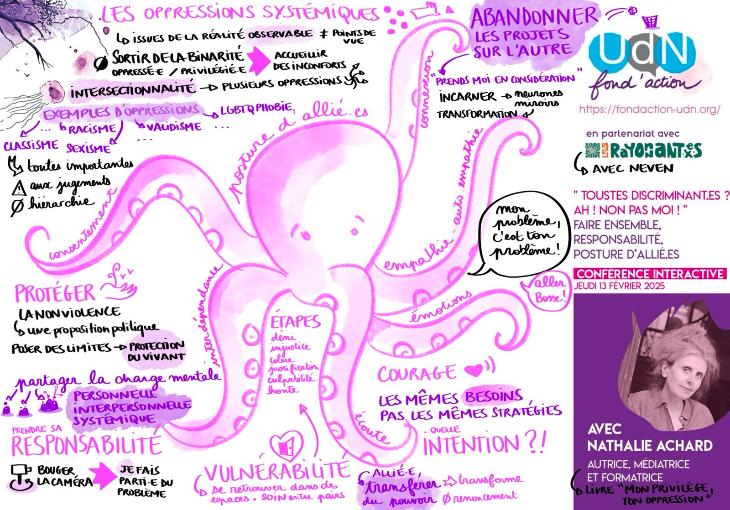 LES OPPRESSIONS SYSTÉMIQUES
ISSUES DE LA RÉALITÉ OBSERVABLE ≠ POINTS DE VUE
SORTIR DE LA BINARITÉ
OPPRESSÉ·E / PRIVILÉGIÉ·E
ACCUEILLIR
DES INCONFORTS
INTERSECTIONNALITÉ → PLUSIEURS OPPRESSIONS
EXEMPLES D'OPPRESSIONS
LGBTQPHOBIE
... RACISME
VALIDISME ...
CLASSISME
SEXISME
...
toutes importantes
aux jugements
hiérarchie
posture d'allié.es
consentement
interdépendante
connexion
empathie - auto empathie
émotions
écoute
ABANDONNER
LES PROJETS
SUR L'AUTRE
"PRENDS MOI EN CONSIDÉRATION"
INCARNER → neurones
miroirs
TRANSFORMATION
mon
problème,
c'est ton
problème!
aller
Bosse!
PROTÉGER
LA NON VIOLENCE
une proposition politique
POSER DES LIMITES → PROTECTION
DU VIVANT
partager la charge mentale
PERSONNELLE
INTERPERSONNELLE
SYSTÉMIQUE
PRENDRE SA
RESPONSABILITÉ
BOUGER
LA CAMÉRA
JE FAIS
PARTI·E DU
PROBLÈME
ÉTAPES
déni
injustice
colère
justification
culpabilité
honte
VULNÉRABILITÉ
se retrouver dans des
espaces. soin entre pairs
COURAGE
LES MÊMES BESOINS
PAS LES MÊMES STRATÉGIES
QUELLE
INTENTION ?!
ALLIÉ·E,
transférer
du pouvoir
→ transforme
Ø renoncement
UdN
fond'action
https://fondaction-udn.org/
en partenariat avec
LES RAYONANT·ES
AVEC NEVEN
" TOUSTES DISCRIMINANT.ES ?
AH ! NON PAS MOI ! "
FAIRE ENSEMBLE,
RESPONSABILITÉ,
POSTURE D'ALLIÉ.ES
CONFERENCE INTERACTIVE
JEUDI 13 FÉVRIER 2025
AVEC
NATHALIE ACHARD
AUTRICE, MÉDIATRICE
ET FORMATRICE
LIVRE "MON PRIVILÈGE,
TON OPPRESSION"